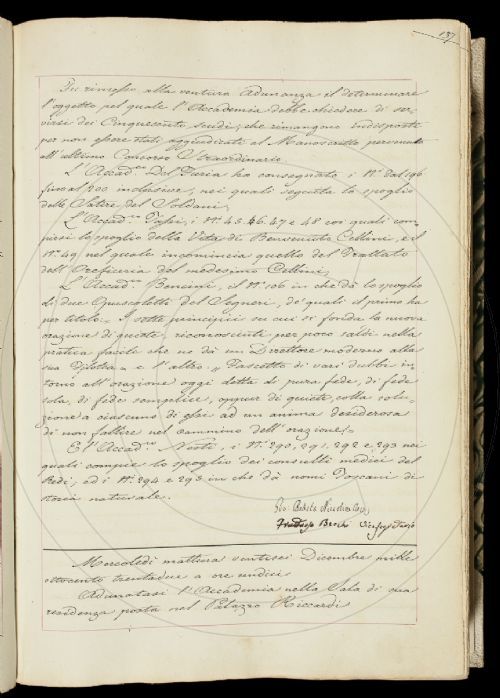 137
Fu rimesso alla ventura Adunanza il determinare
l'oggetto pel quale l'Accademia debba chiedere di ser-
virsi dei Cinquecento scudi, che rimangono indisposti
per non essere stati aggiudicati al Manoscritto pervenuto
all'ultimo Concorso Straordinario.
L'Accad.co Del Furia ha consegnato i N.i dal 196
fino al 200 inclusive, nei quali seguita lo spoglio
delle Satire del Soldani;
L'Accad.co Fossi, i N.i 45. 46. 47 e 48 coi quali com-
pisce lo spoglio della Vita di Benvenuto Cellini, e il
N.o 49 nel quale incomincia quello del Trattato
dell'Oreficeria del medesimo Cellini;
L'Accad.co Bencini, il N.o 106 in che dà lo spoglio
di due Opuscoletti del Segneri, de' quali il primo ha
per titolo = I sette principii su cui si fonda la nuova
orazione di quiete, riconosciuti per poco saldi nella
pratica facile che ne dà un Direttore moderno alla
sua Filotea = e l'altro = Fascetto di vari dubbi in-
torno all'orazione oggi detta di pura fede, di fede
sola, di fede semplice, oppur di quiete, colla solu-
zione a ciascuno di essi ad un anima desiderosa
di non fallire nel cammino dell'orazione;
E l'Accad.co Nesti, i N.i 290, 291, 292 e 293 nei
quali compie lo spoglio dei consulti medici del
Redi, ed i N.i 294 e 295 in che dà nomi Toscani di
storia naturale.
Gio: Batista
Fruttuoso Becchi Vicesegretario
Mercoledì mattina ventisei Dicembre mille
ottocento trentadue a ore undici
Adunatasi l'Accademia nella Sala di sua
residenza posta nel Palazzo Riccardi